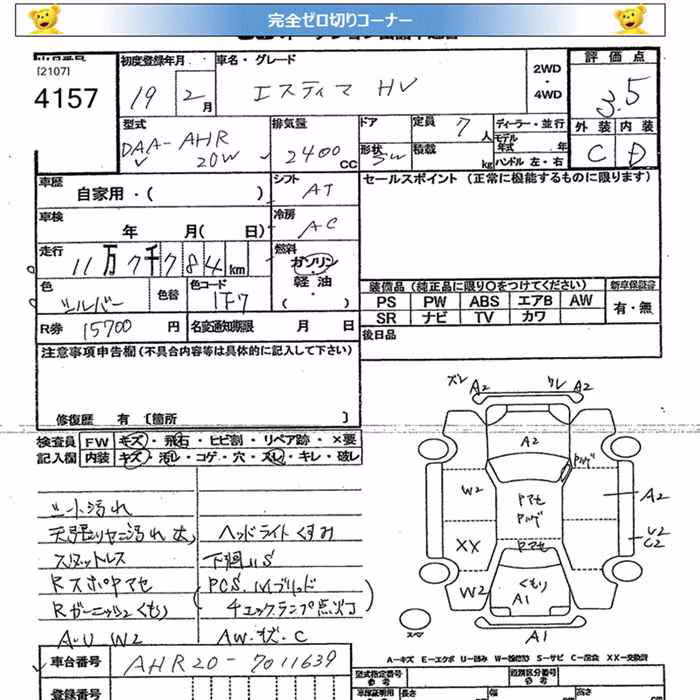 完全ゼロ切りコーナー
[2107]
4157
初度登録年月
19 2月
車名・グレード
エスティマ HV
2WD
・
4WD
評価点
3.5
外装 内装
C D
型式
DAA-AHR
20W
排気量
2400CC
ドア
形状 5W
定員 7人
積載 kg
ディーラー・並行
モデル
年式 年
ハンドル 左・右
車歴
自家用・( )
シフト
AT
セールスポイント (正常に機能するものに限ります)
車検
年 月( 日)
冷房
AC
走行
11万7千784km
燃料
ガソリン
・
軽油
・
( )
色
シルバー
色替
色コード
1F7
装備品 (純正品に限り○をつけてください)
新車保証書
PS PW ABS エアB AW
SR ナビ TV カワ
有・無
R券 15700円
名変通知期限 月 日
後日品
注意事項申告欄 (不具合内容等は具体的に記入して下さい)
修復歴 有 〔箇所 〕
検査員
記入欄
FW キズ・飛石・ヒビ割・リペア跡・×要
内装 キズ・汚レ・コゲ・穴・スレ・キレ・破レ
シート汚れ
天張りヤニ汚れ大
ヘッドライトくすみ
スタットレス
下廻りS
Rスポヤマセ
PCS、ハイブリッド
Rガーニッシュくもり
チェックランプ点灯
A-U W2
AW・キズ・C
ズレ A2
ワレ A2
A2
ハゲ
W2
ヤマセ
ハゲ
A2
XX
ヤマセ
U2
C2
W2
くもり
A1
A1
スペア
車台番号 AHR20-7011639
A-キズ E-エクボ U-凹み W-補修跡 S-サビ C-腐食 XX-交換済
登録番号
型式指定番号
参考
類別区分番号
参考
長さ
幅
高さ